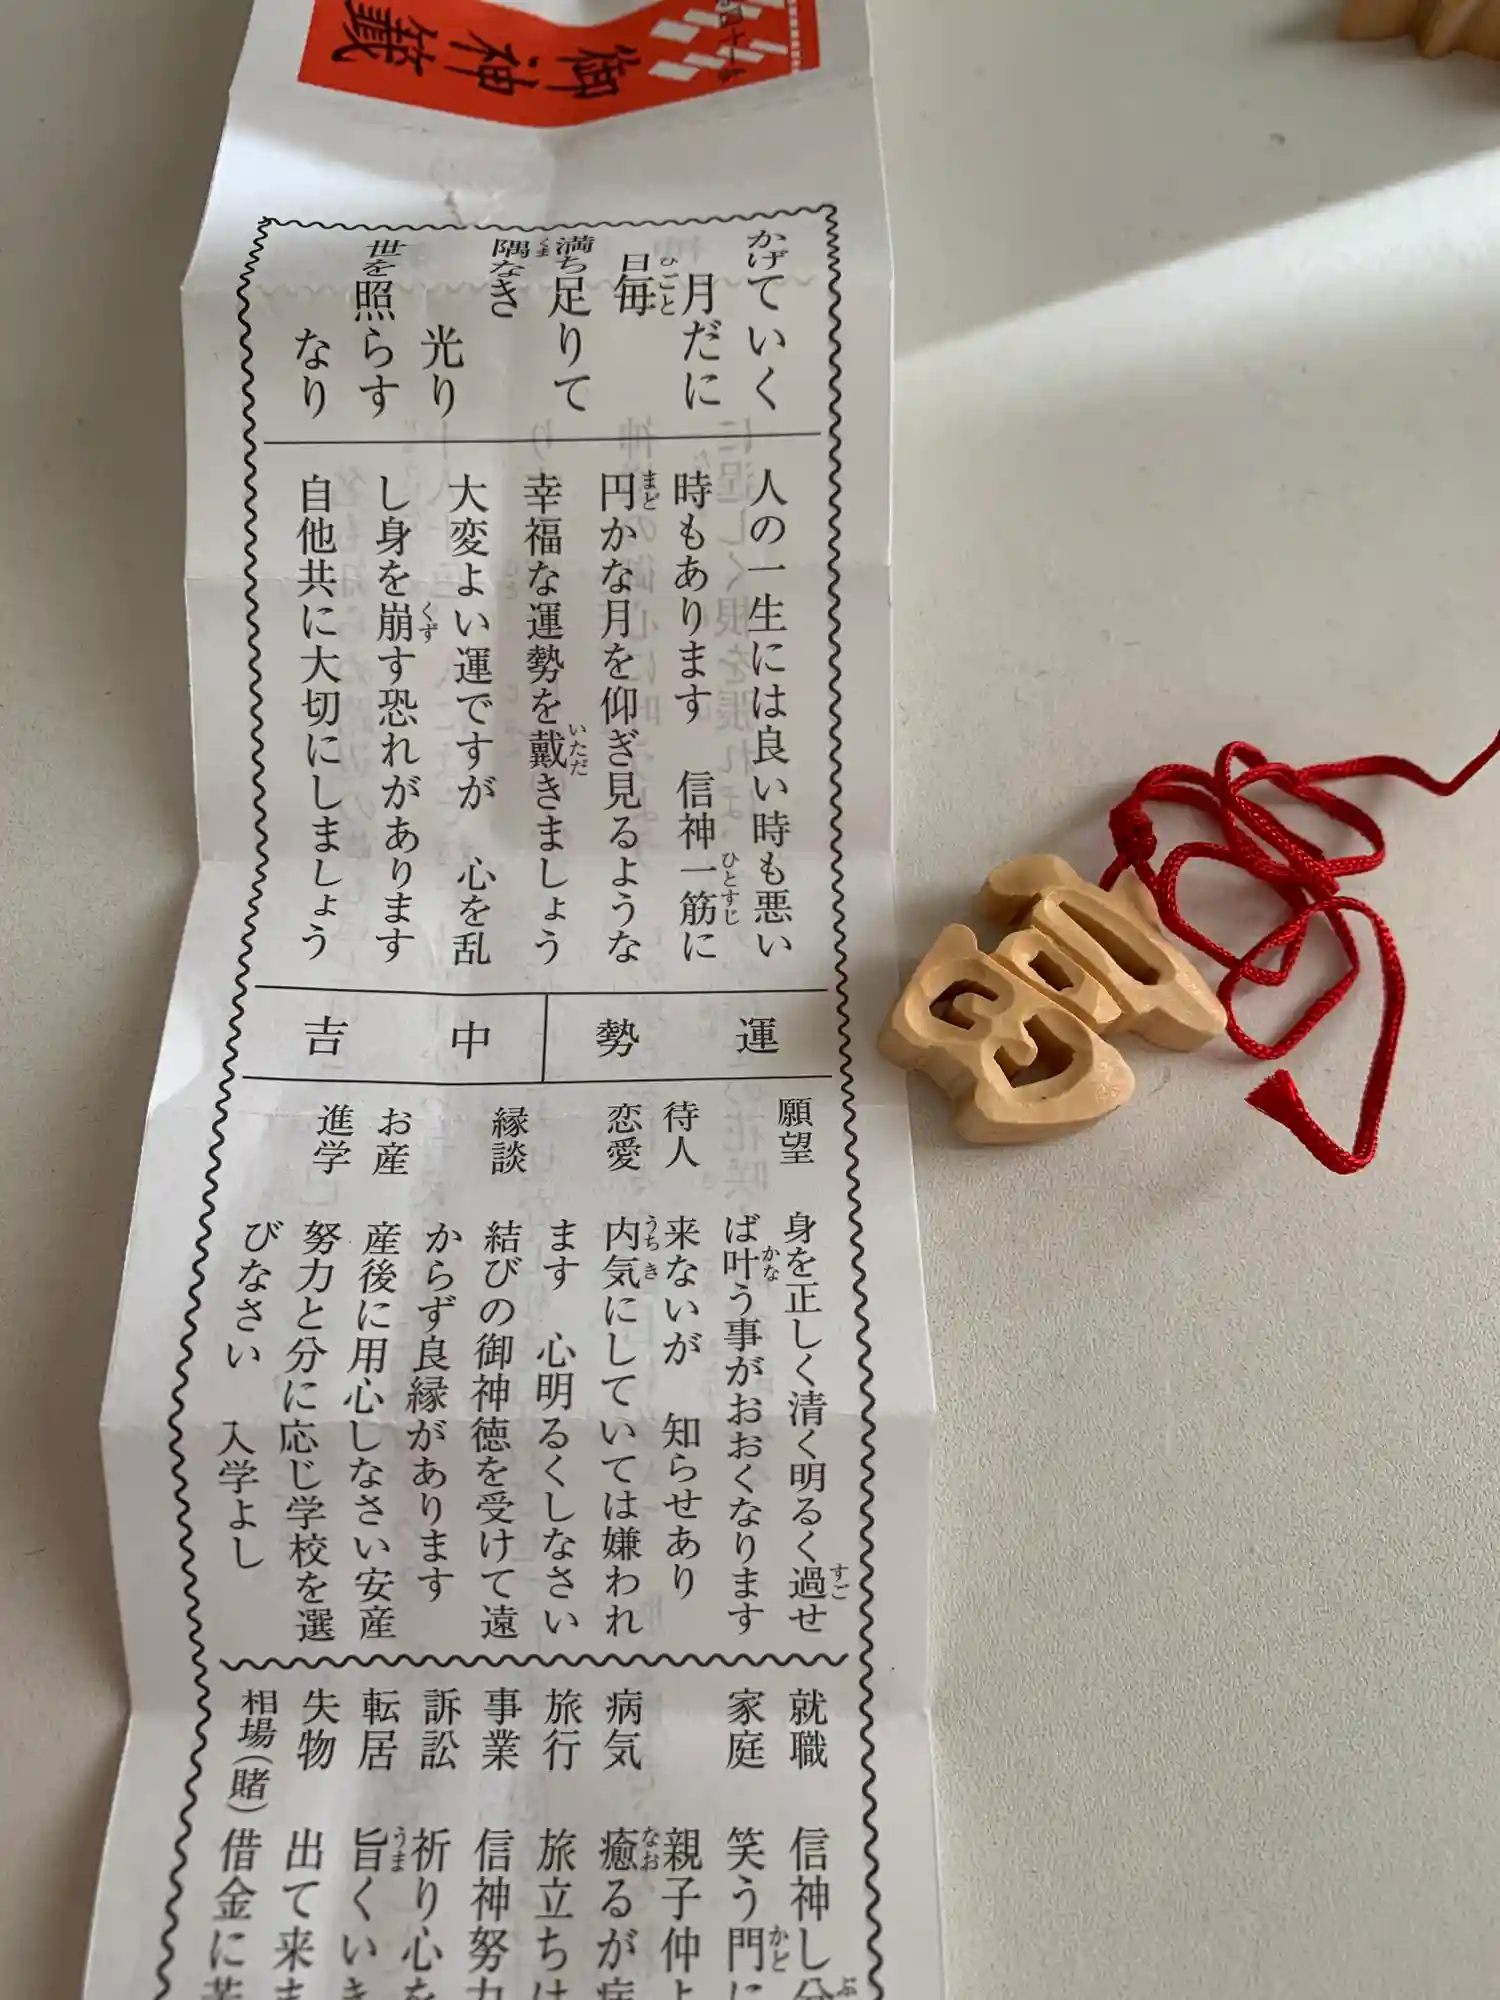 御神籤
かげていく
月だに
日毎
満ち足りて
隅なき
光り
世を照らす
なり
人の一生には良い時も悪い
時もあります 信神一筋に
円かな月を仰ぎ見るような
幸福な運勢を戴きましょう
大変よい運ですが 心を乱
し身を崩す恐れがあります
自他共に大切にしましょう
運勢 中吉
願望 身を正しく清く明るく過せ
ば叶う事がおおくなります
待人 来ないが 知らせあり
恋愛 内気にしていては嫌われ
ます 心明るくしなさい
縁談 結びの御神徳を受けて遠
からず良縁があります
お産 産後に用心しなさい安産
進学 努力と分に応じ学校を選
びなさい 入学よし
就職 信神し分
家庭 笑う門に
親子仲よ
病気 癒るが病
旅行 旅立ちは
事業 信神努力
訴訟 祈り心を
転居 旨くいき
失物 出て来ま
相場(賭) 借金に苦